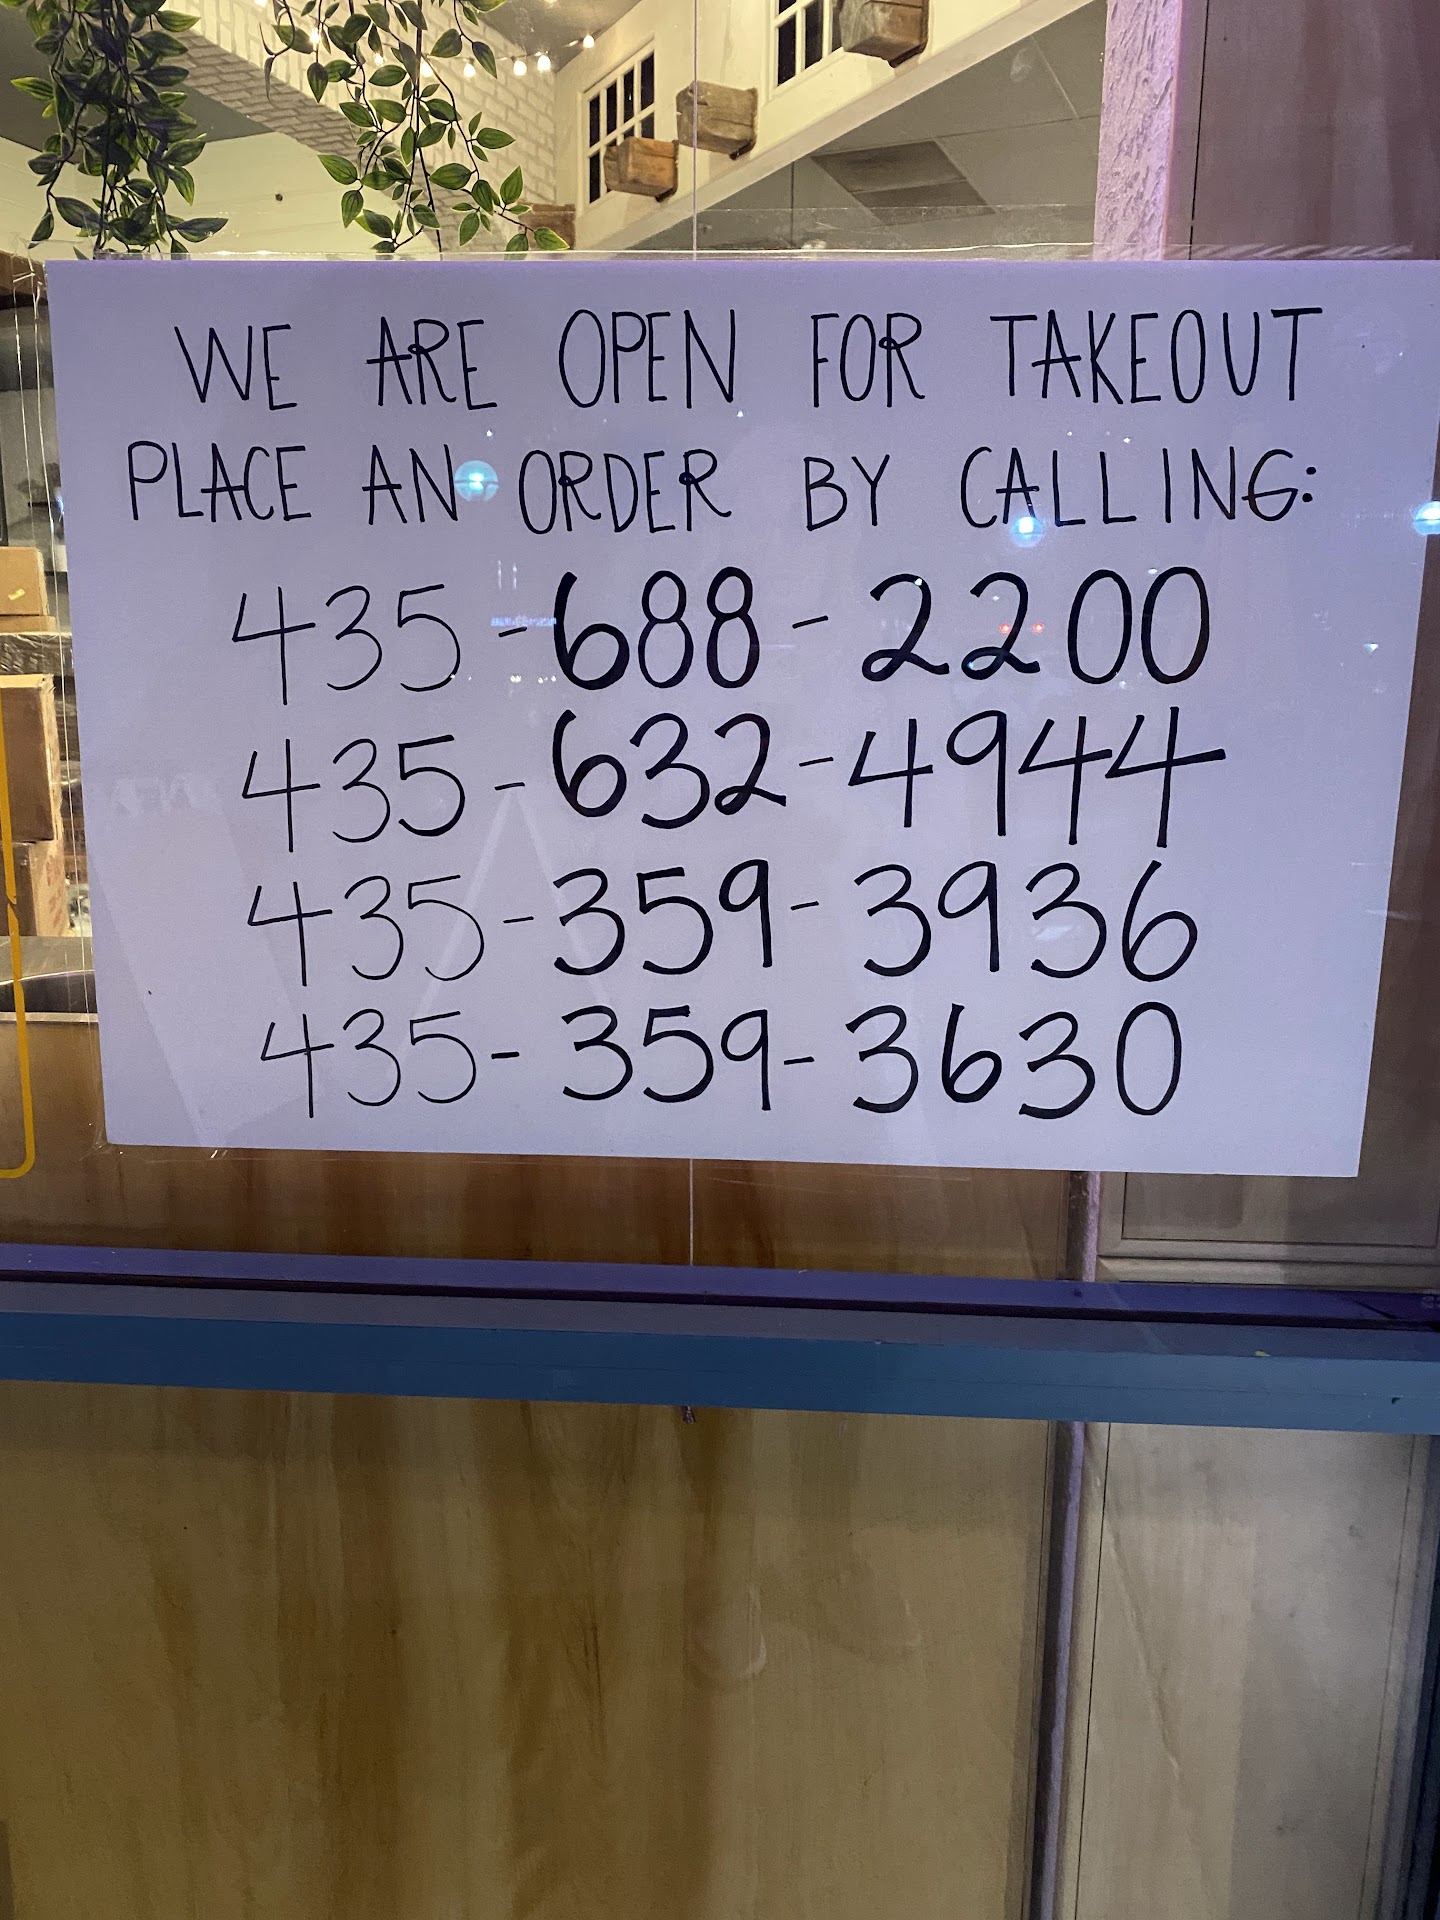 WE ARE OPEN FOR TAKEOUT
PLACE AN ORDER BY CALLING:
435-688-2200
435-632-4944
435-359-3936
435-359-3630